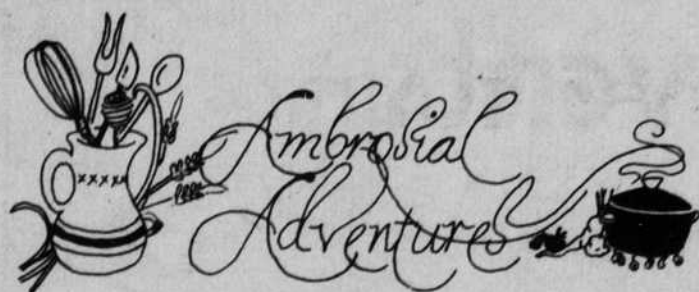 Ambrosial
Adventures